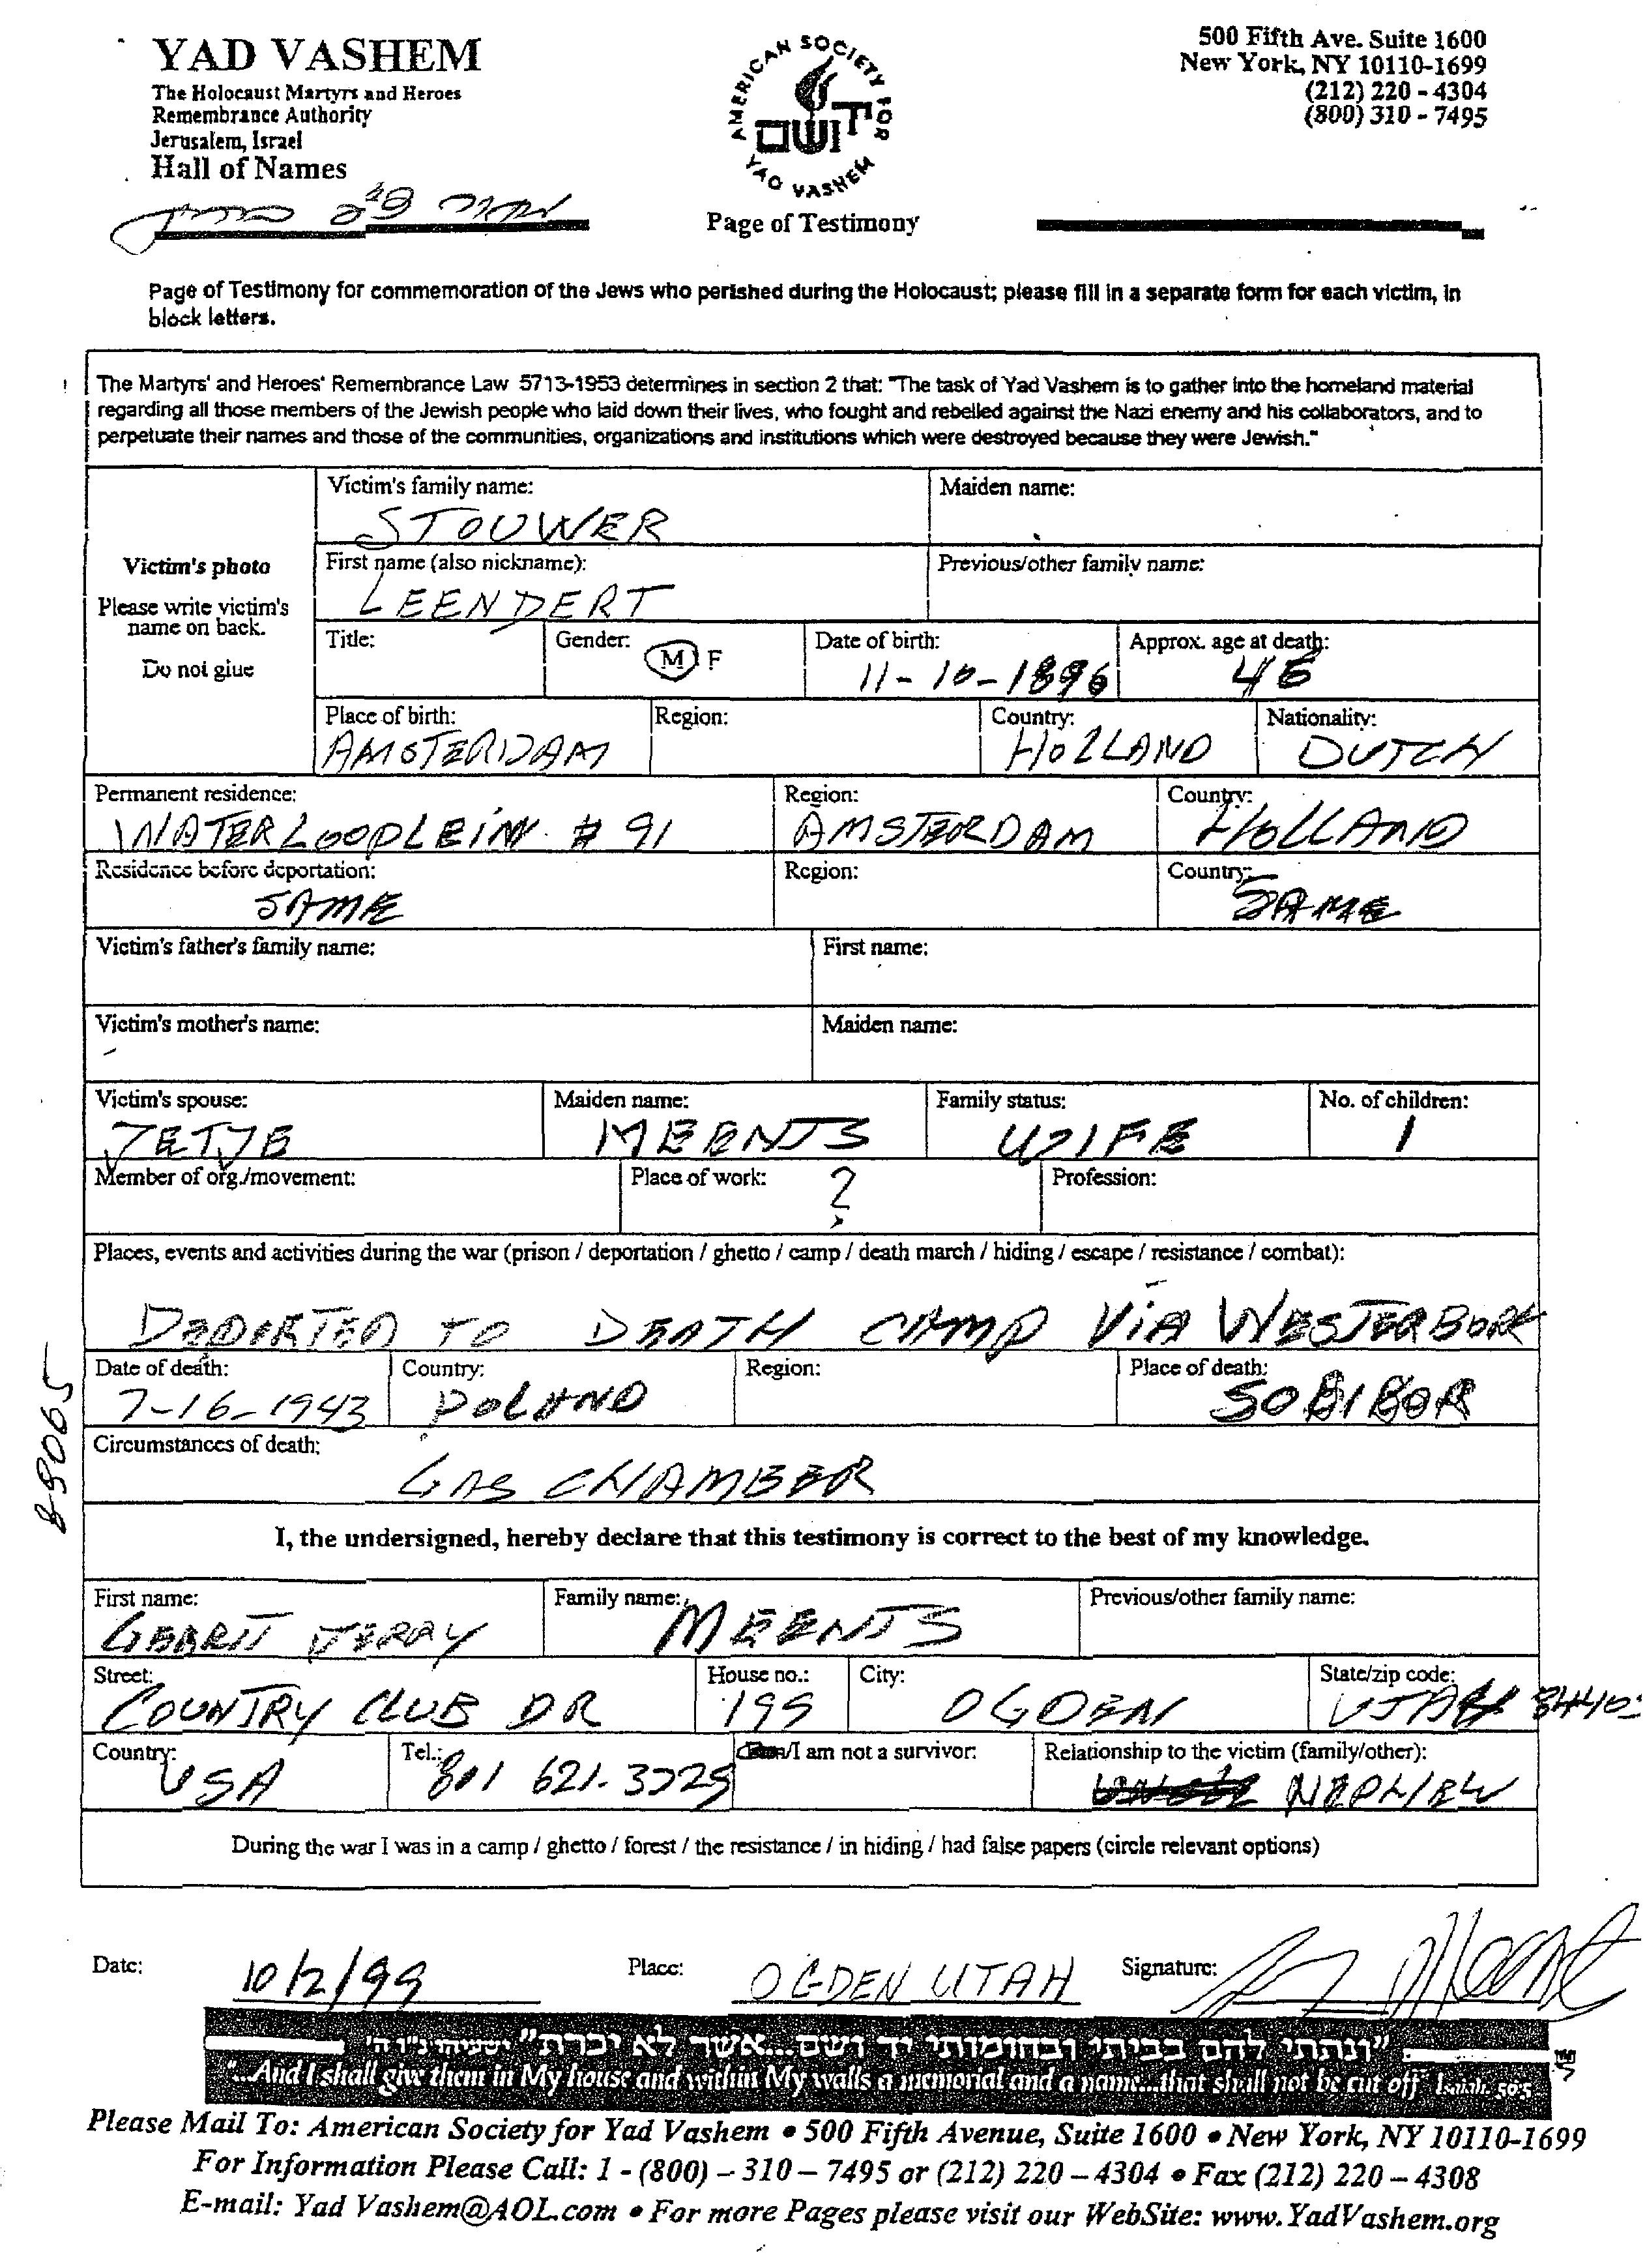 YAD VASHEM
The Holocaust Martyrs and Heroes
Remembrance Authority
Jerusalem, Israel
Hall of Names
AMERICAN SOCIETY FOR
יד ושם
YAD VASHEM
Page of Testimony
500 Fifth Ave. Suite 1600
New York, NY 10110-1699
(212) 220 - 4304
(800) 310 - 7495
Page of Testimony for commemoration of the Jews who perished during the Holocaust; please fill in a separate form for each victim, in
block letters.
The Martyrs' and Heroes' Remembrance Law 5713-1953 determines in section 2 that: "The task of Yad Vashem is to gather into the homeland material
regarding all those members of the Jewish people who laid down their lives, who fought and rebelled against the Nazi enemy and his collaborators, and to
perpetuate their names and those of the communities, organizations and institutions which were destroyed because they were Jewish."
Victim's photo
Please write victim's
name on back.
Do not glue
Victim's family name: Maiden name:
STOUWER
First name (also nickname): Previous/other family name:
LEENDERT
Title: Gender: M F Date of birth: Approx. age at death:
11-10-1896 46
Place of birth: Region: Country: Nationality:
AMSTERDAM HOLLAND DUTCH
Permanent residence: Region: Country:
WATERLOOPLEIN # 91 AMSTERDAM HOLLAND
Residence before deportation: Region: Country:
SAME SAME
Victim's father's family name: First name:
Victim's mother's name: Maiden name:
Victim's spouse: Maiden name: Family status: No. of children:
JETJE MEENTS WIFE 1
Member of org./movement: Place of work: ? Profession:
Places, events and activities during the war (prison / deportation / ghetto / camp / death march / hiding / escape / resistance / combat):
DEPORTED TO DEATH CAMP VIA WESTERBORK
Date of death: Country: Region: Place of death:
7-16-1943 POLAND SOBIBOR
Circumstances of death:
GAS CHAMBER
89065
I, the undersigned, hereby declare that this testimony is correct to the best of my knowledge.
First name: Family name: Previous/other family name:
GERRIT JERRY MEENTS
Street: House no.: City: State/zip code:
COUNTRY CLUB DR 199 OGDEN UTAH 84405
Country: Tel.: I am not a survivor: Relationship to the victim (family/other):
USA 801 621-3725 NEPHEW
During the war I was in a camp / ghetto / forest / the resistance / in hiding / had false papers (circle relevant options)
Date: 10/2/99 Place: OGDEN UTAH Signature:
"ונתתי להם בביתי ובחומותי יד ושם...אשר לא יכרת" ישעיהו נ"ו ה'
"..And I shall give them in My house and within My walls a memorial and a name...that shall not be cut off" Isaiah 56:5
Please Mail To: American Society for Yad Vashem • 500 Fifth Avenue, Suite 1600 • New York, NY 10110-1699
For Information Please Call: 1 - (800) – 310 – 7495 or (212) 220 – 4304 • Fax (212) 220 – 4308
E-mail: Yad Vashem@AOL.com • For more Pages please visit our WebSite: www.YadVashem.org